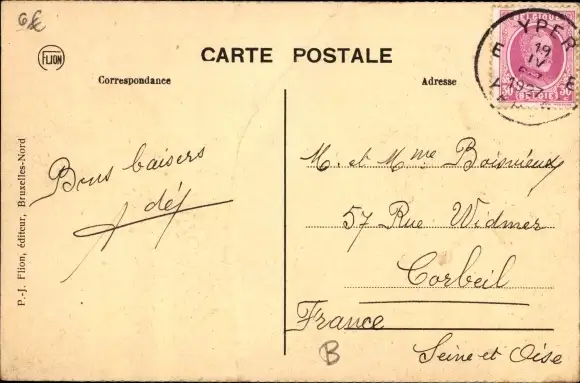 6€
FLION
CARTE POSTALE
Correspondance
Adresse
BELGIQUE
BELGIË
YPER
19
IV
1927
Bons baisers
M. et Mme Boisvieux
57 Rue Widmer
Corbeil
France
Seine et Oise
B
P.-J. Flion, éditeur, Bruxelles-Nord